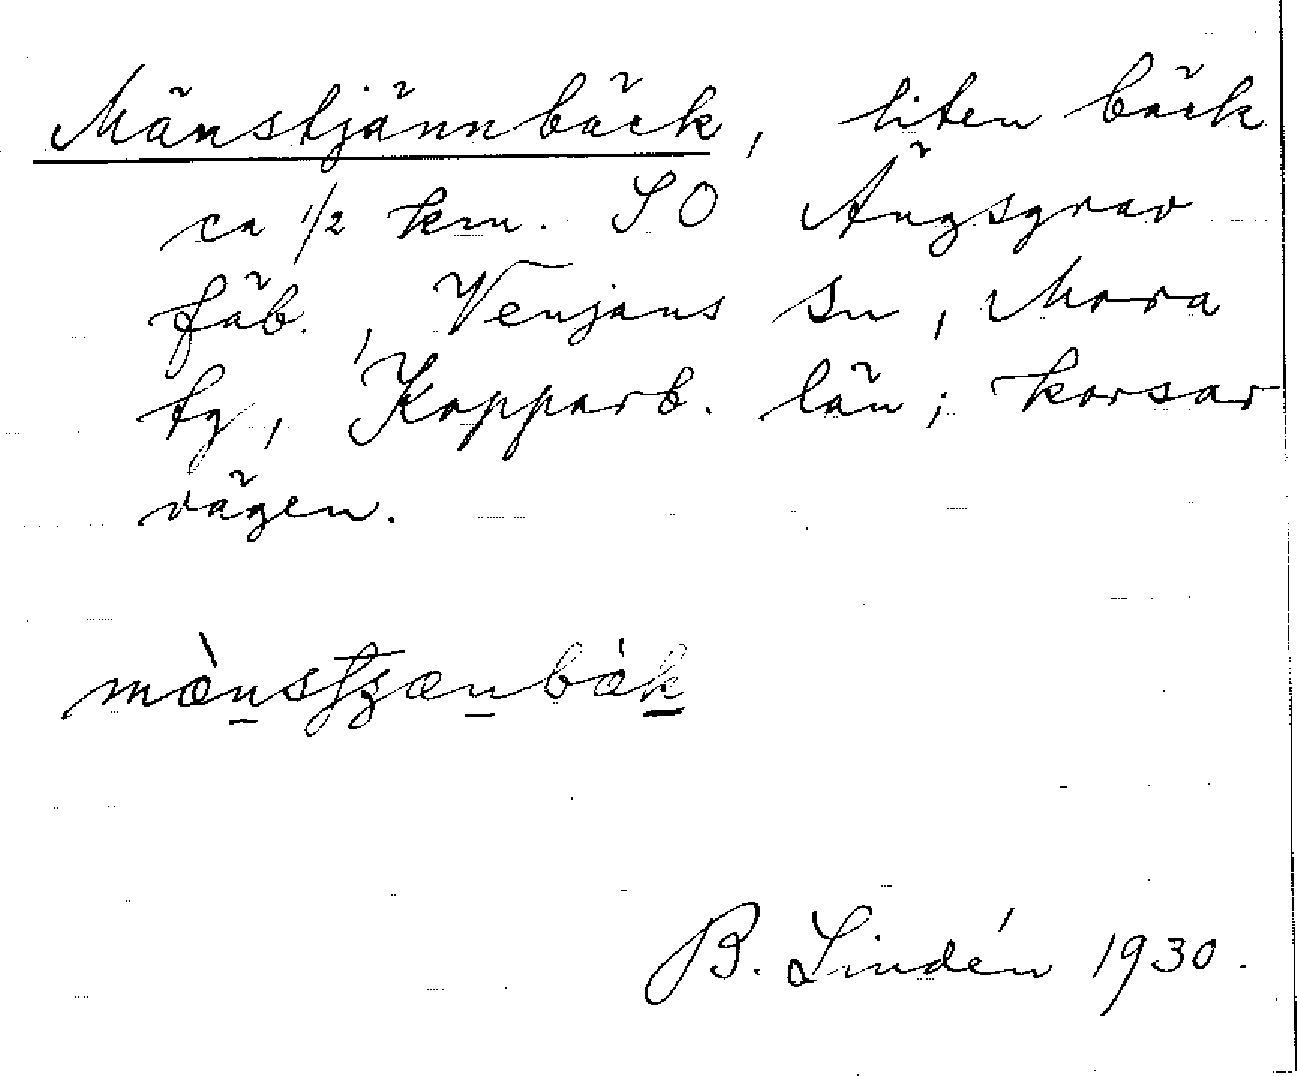 Mänstjännbäck, liten bäck
ca 1/2 km. SO Ängsgrav
fäb., Venjans sn, Mora
tg, Kopparb. län; korsar
vägen.
B. Lindén 1930.